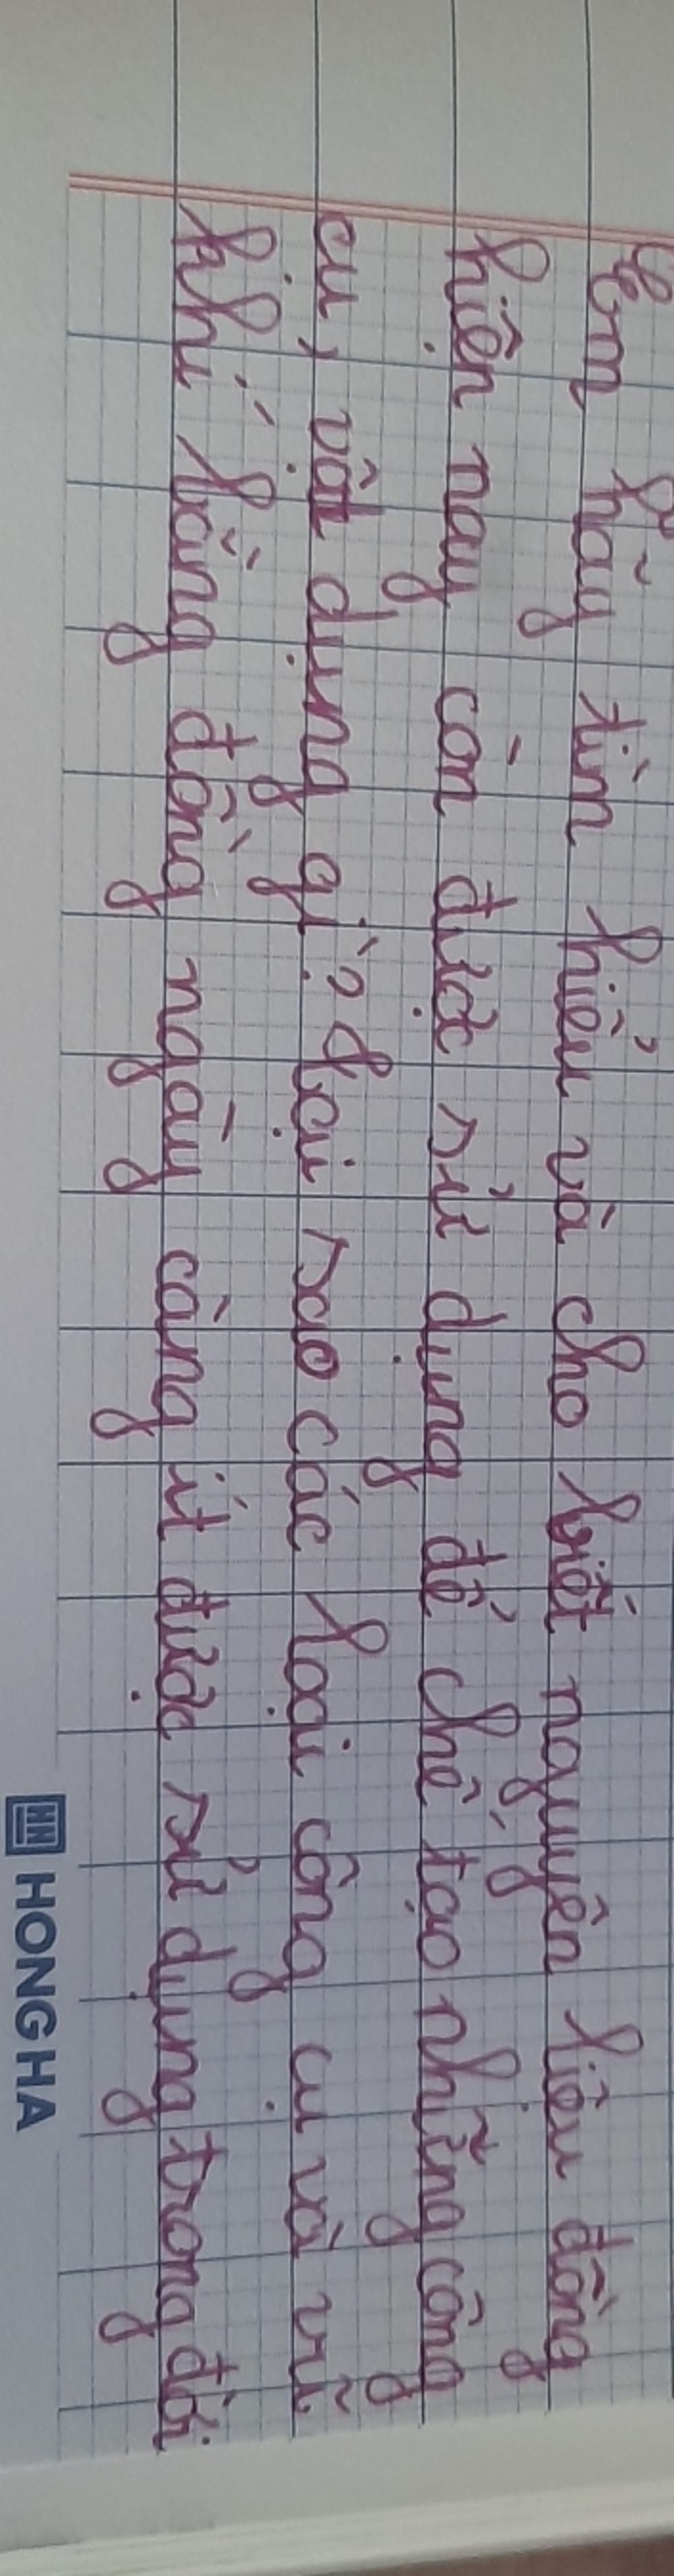 Em hãy tìm hiểu và cho biết nguyên liệu đồng
hiện nay còn được sử dụng để chế tạo những công
cụ, vật dụng gì? Tại sao các loại công cụ và vũ
khí bằng đồng ngày càng ít được sử dụng trong đời
HONG HA